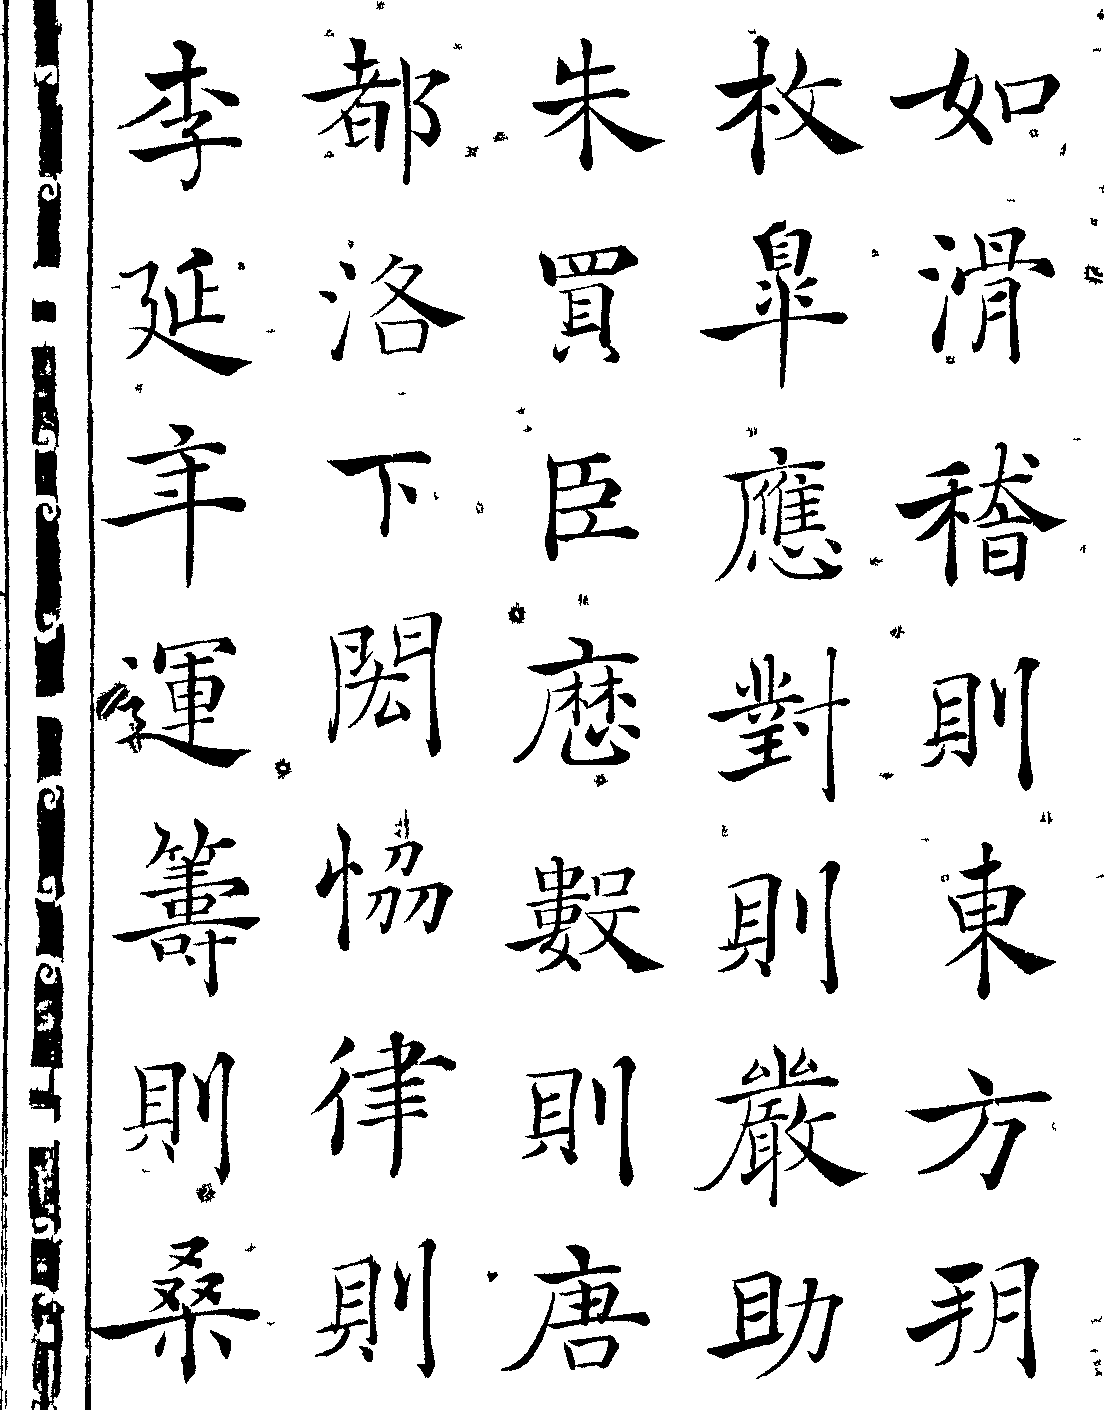 如滑稽則東方朔
枚皐應對則嚴助
朱買臣歴數則唐
都洛下閎恊律則
李延年運籌則桑